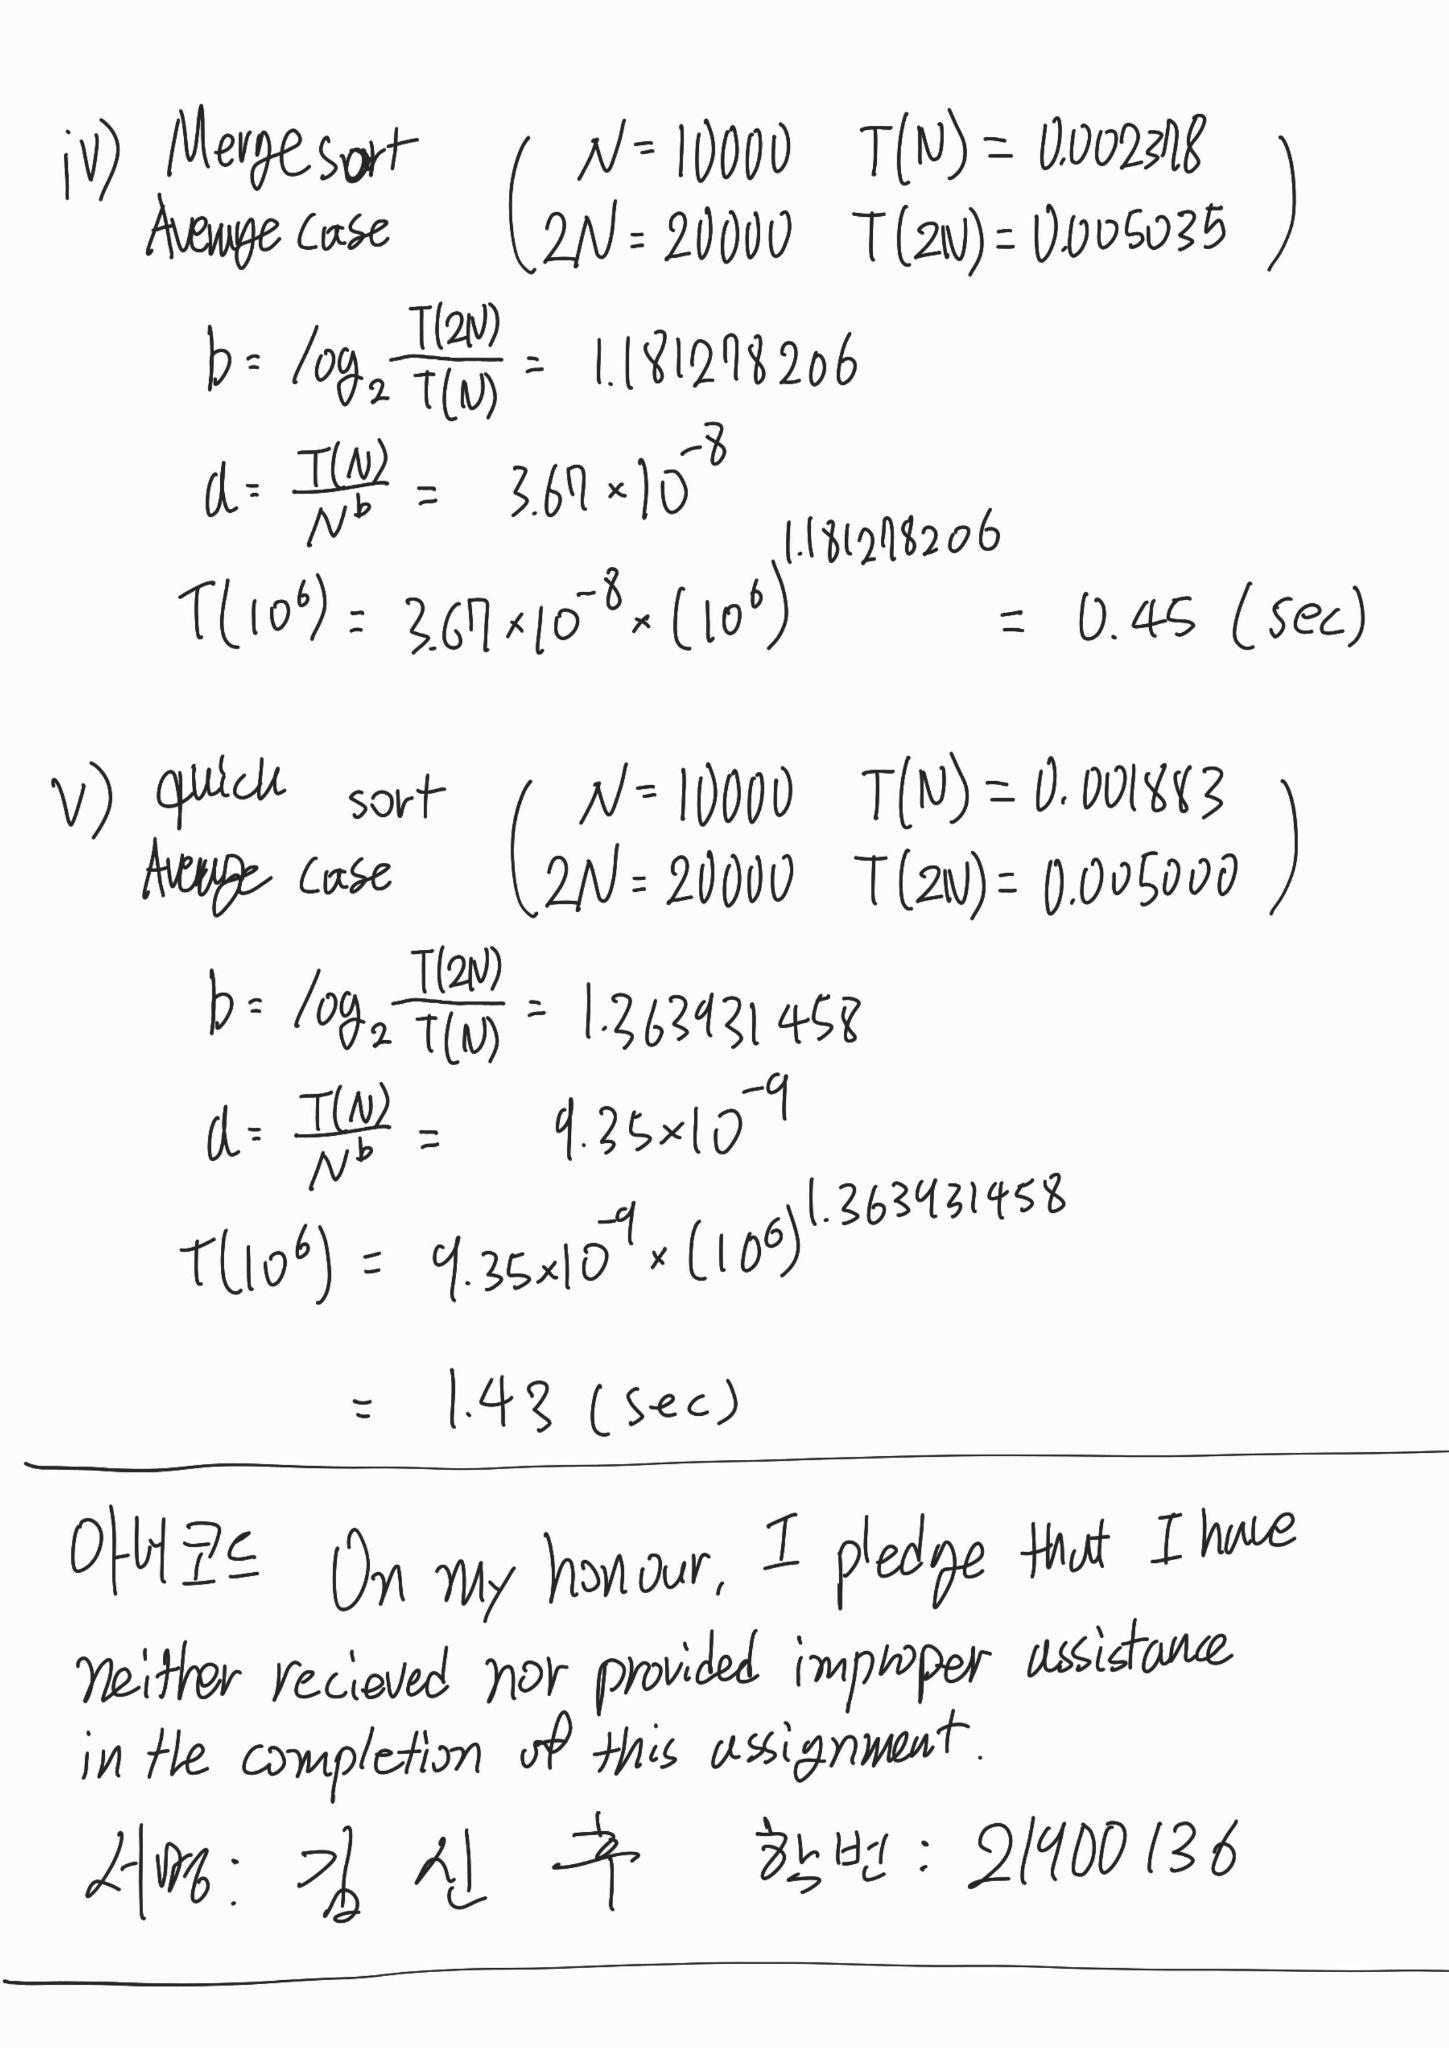 iv) Merge sort ( N = 10000 T(N) = 0.002378
Average case 2N = 20000 T(2N) = 0.005035 )
b = log₂ T(2N)/T(N) = 1.181278206
a = T(N)/Nᵇ = 3.67 × 10⁻⁸
T(10⁶) = 3.67 × 10⁻⁸ × (10⁶)^1.181278206 = 0.45 (sec)
v) quick sort ( N = 10000 T(N) = 0.001883
Average case 2N = 20000 T(2N) = 0.005000 )
b = log₂ T(2N)/T(N) = 1.363931458
a = T(N)/Nᵇ = 9.35 × 10⁻⁹
T(10⁶) = 9.35 × 10⁻⁹ × (10⁶)^1.363931458
= 1.43 (sec)
아너코드 On my honour, I pledge that I have
neither recieved nor provided improper assistance
in the completion of this assignment.
서명: 김 신 후 학번: 21900136